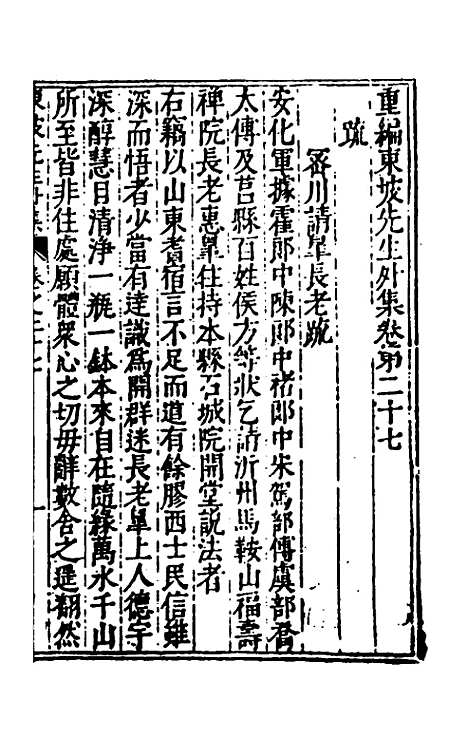 重編東坡先生外集卷第二十七
疏
密川請臯長老疏
安化軍據霍郎中陳郎中褚郎中朱駕部傅虞部喬
太傅及莒縣百姓侯方等狀乞請沂州馬鞍山福壽
禪院長老惠臯住持本縣石城院開堂說法者
右竊以山東耆宿言不足而道有餘膠西士民信雖
深而悟者少當有達識爲開群迷長老臯上人德宇
深醇慧目清淨一瓶一鉢本來自在隨緣萬水千山
所至皆非住處願體衆心之切毋辭數舍之遥翻然